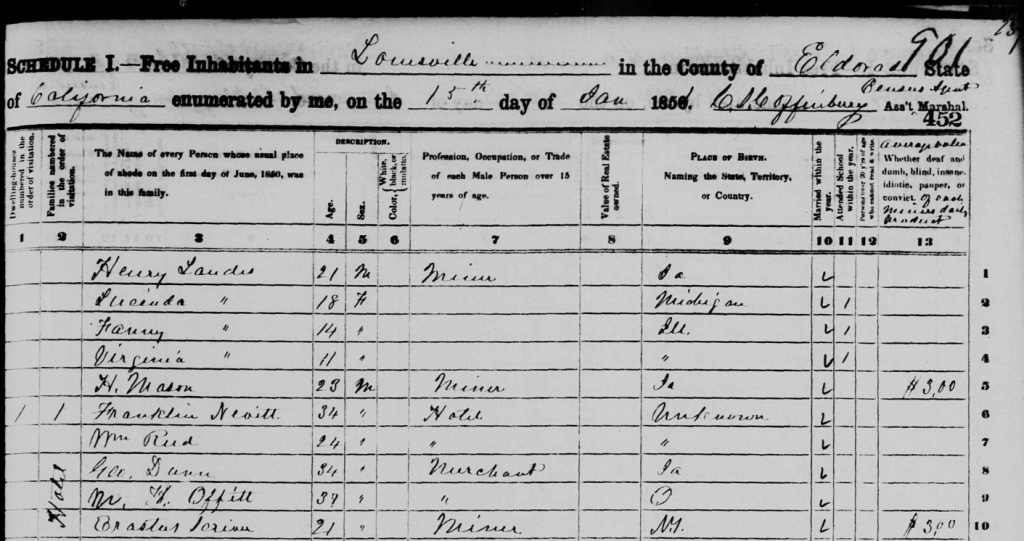 901
SCHEDULE I.—Free Inhabitants in Louisville in the County of Eldorado State
of California enumerated by me, on the 15th day of Jan 1851. Census Agent Ass't Marshal.
452
Dwelling-houses numbered in the order of visitation.
Families numbered in the order of visitation.
The Name of every Person whose usual place of abode on the first day of June, 1850, was in this family.
DESCRIPTION.
Age.
Sex.
Color, White, black, or mulatto.
Profession, Occupation, or Trade of each Male Person over 15 years of age.
Value of Real Estate owned.
PLACE OF BIRTH. Naming the State, Territory, or Country.
Married within the year.
Attended School within the year.
Persons over 20 y'rs of age who cannot read & write
Average value
Whether deaf and dumb, blind, insane, idiotic, pauper, or convict. of each Miners daily product
1 2 3 4 5 6 7 8 9 10 11 12 13
Henry Landis 21 M Miner Ia 1
Lucinda " 18 F Michigan 1 2
Fanny " 14 " Ill. 1 3
Virginia " 11 " " 1 4
H. Mason 23 M Miner Ia $3,00 5
1 1 Franklin Nevitt 34 " Hotel Unknown 6
Wm Reed 24 " " " 7
Geo. Dunn 34 " Merchant Ia 8
Hotel
M. H. Offitt 37 " " O 9
Erastus 21 " Miner N.Y. $3,00 10